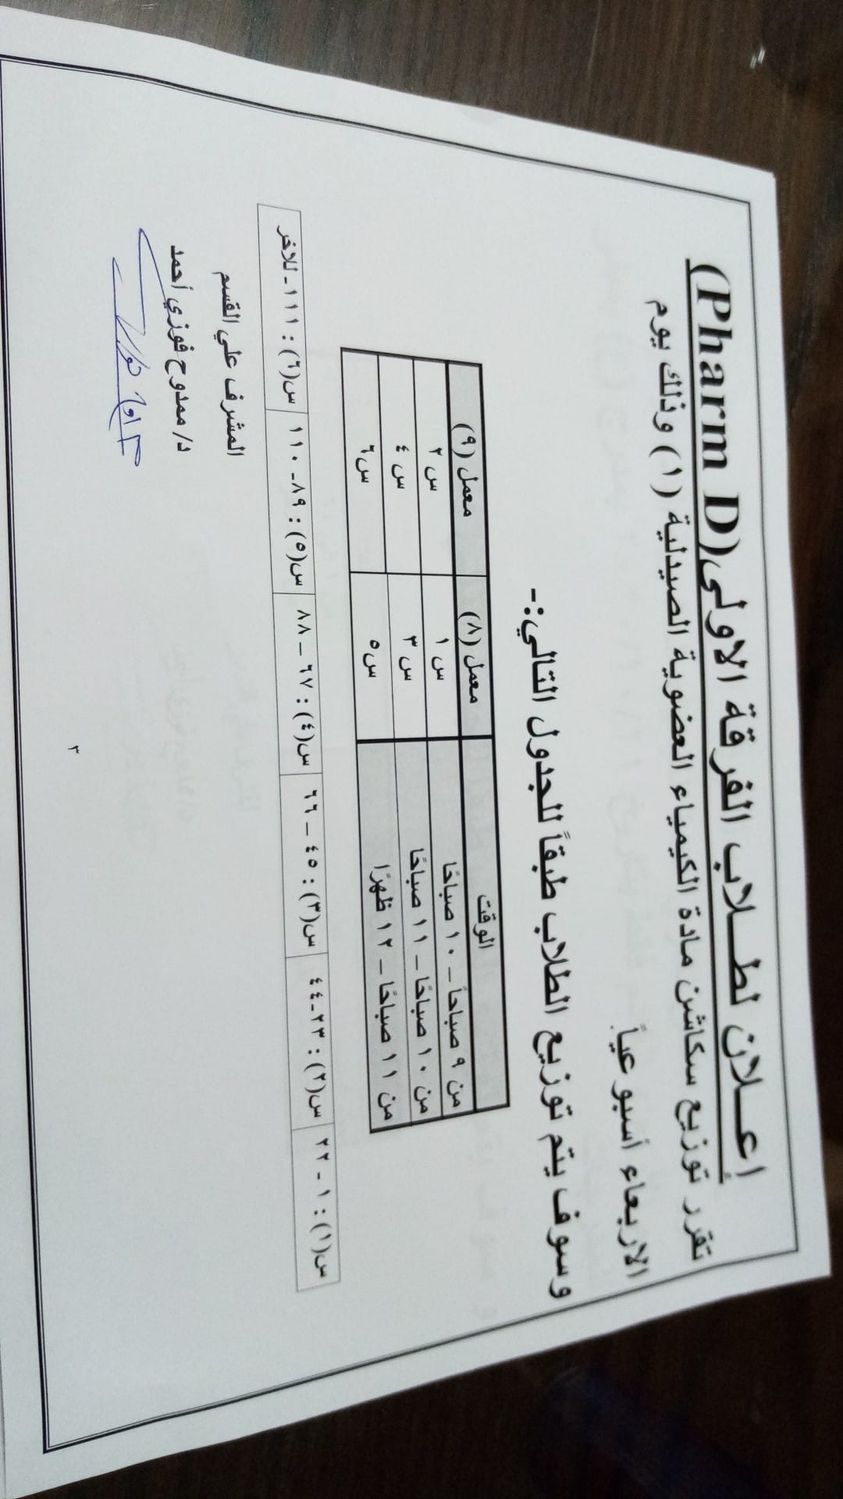 إعـــلان لطـــلاب الفرقة الاولى(Pharm D)
تقرر توزيع سكاشن مادة الكيمياء العضوية الصيدلية (١) وذلك يوم
الاربعاء أسبوعياً.
وسوف يتم توزيع الطلاب طبقاً للجدول التالي:-
الوقت معمل (٨) معمل (٩)
من ٩ صباحاً – ١٠ صباحًا س ١ س ٢
من ١٠ صباحًا – ١١ صباحًا س ٣ س ٤
من ١١ صباحًا – ١٢ ظهرًا س ٥ س ٦
س(١): ١ - ٢٢ س(٢): ٢٣-٤٤ س(٣): ٤٥ – ٦٦ س(٤): ٦٧ – ٨٨ س(٥): ٨٩-١١٠ س(٦): ١١١-للاخر
المشرف علي القسم
د/ ممدوح فوزي أحمد
٣